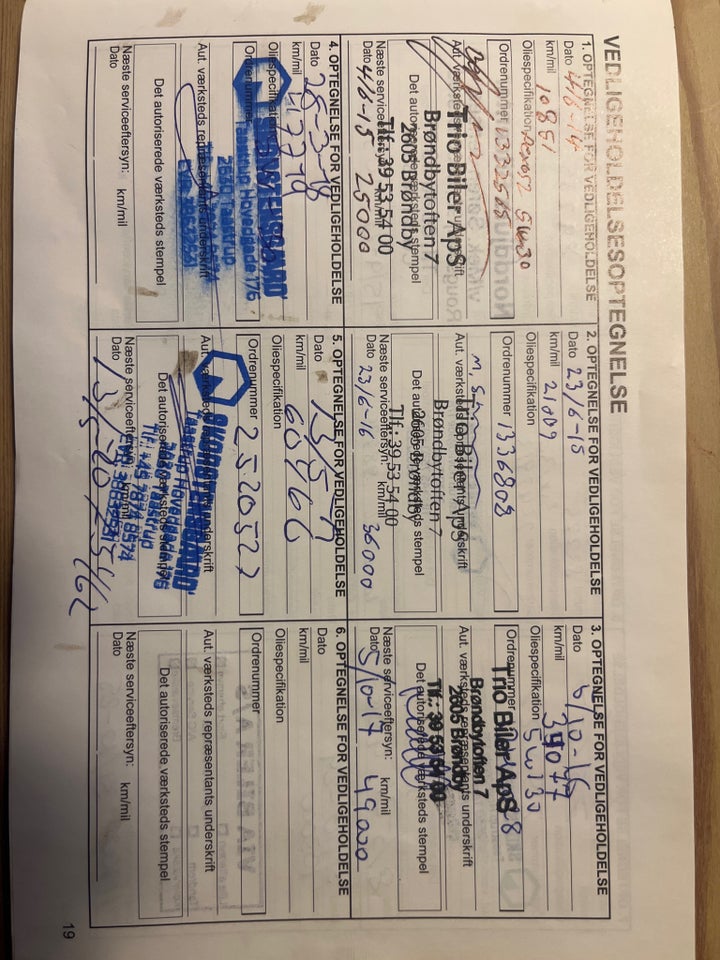 VEDLIGEHOLDELSESOPTEGNELSE
1. OPTEGNELSE FOR VEDLIGEHOLDELSE
Dato 4/6-14
km/mil 10891
Oliespecifikation 5W30
Ordrenummer 1332505
Aut. værksteds
Trio Biler ApS
Brøndbytoften 7
2605 Brøndby
Tlf.: 39 53 54 00
Det autoriserede værksteds stempel
Næste serviceeftersyn: km/mil
Dato 4/6-15 25000
2. OPTEGNELSE FOR VEDLIGEHOLDELSE
Dato 23/6-15
km/mil 21009
Oliespecifikation
Ordrenummer 1336808
Aut. værksteds repræsentants underskrift
Trio Biler ApS
Brøndbytoften 7
2605 Brøndby
Tlf.: 39 53 54 00
Det autoriserede værksteds stempel
Næste serviceeftersyn: km/mil
Dato 23/6-16 36000
3. OPTEGNELSE FOR VEDLIGEHOLDELSE
Dato 5/10-16
km/mil 39077
Oliespecifikation 5W30
Ordrenummer
Aut. værksteds repræsentants underskrift
Trio Biler ApS
Brøndbytoften 7
2605 Brøndby
Tlf.: 39 53 54 00
Det autoriserede værksteds stempel
Næste serviceeftersyn: km/mil
Dato 5/10-17 49000
4. OPTEGNELSE FOR VEDLIGEHOLDELSE
Dato 28-3-18
km/mil
Oliespecifikation
Ordrenummer
Aut. værksteds repræsentants underskrift
SKORSTENSGAARD
Taastrup Hovedgade 176
2630 Taastrup
Det autoriserede værksteds stempel
Næste serviceeftersyn: km/mil
Dato
5. OPTEGNELSE FOR VEDLIGEHOLDELSE
Dato
km/mil 60466
Oliespecifikation
Ordrenummer 2520527
Aut. værksteds repræsentants underskrift
SKORSTENSGAARD
Taastrup Hovedgade 176
2630 Taastrup
Tlf.: +45 7874 8574
Det autoriserede værksteds stempel
Næste serviceeftersyn: km/mil
Dato 13/5-20
6. OPTEGNELSE FOR VEDLIGEHOLDELSE
Dato
km/mil
Oliespecifikation
Ordrenummer
Aut. værksteds repræsentants underskrift
Det autoriserede værksteds stempel
Næste serviceeftersyn: km/mil
Dato
19